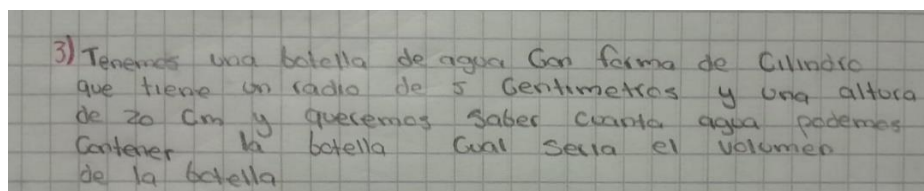 3) Tenemos una botella de agua Con forma de Cilindro
que tiene un radio de 5 Centimetros y una altura
de 20 Cm y queremos Saber cuanta agua podemos
Contener la botella Cual Seria el volumen
de la botella